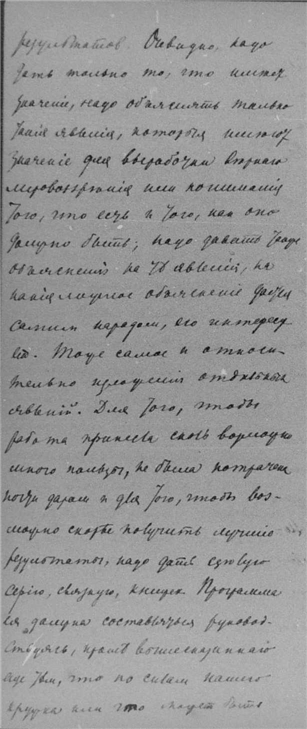 результатов. Очевидно, надо
дать только то, что имеет
значение, надо объяснять только
такие явления, которыя имеют
значение для выработки вернаго
мировоззрения или понимания
того, что есть и того, как оно
должно быть; надо давать также
объяснения на те явления, на
какие ложное объяснение дается
самим народом, его интересу-
ет. Тоже самое и относи-
тельно изложения отдельных
явлений. Для того, чтобы
работа принесла свою возможно
много пользы, не была потрачена
почти даром и для того, чтобы воз-
можно скорее получить лучшие
результаты, надо дать целую
серию, связную, книжек. Программа
ея должна составляться руковод-
ствуясь, кроме вышесказаннаго
еще тем, что по силам нашего
кружка или что может быть